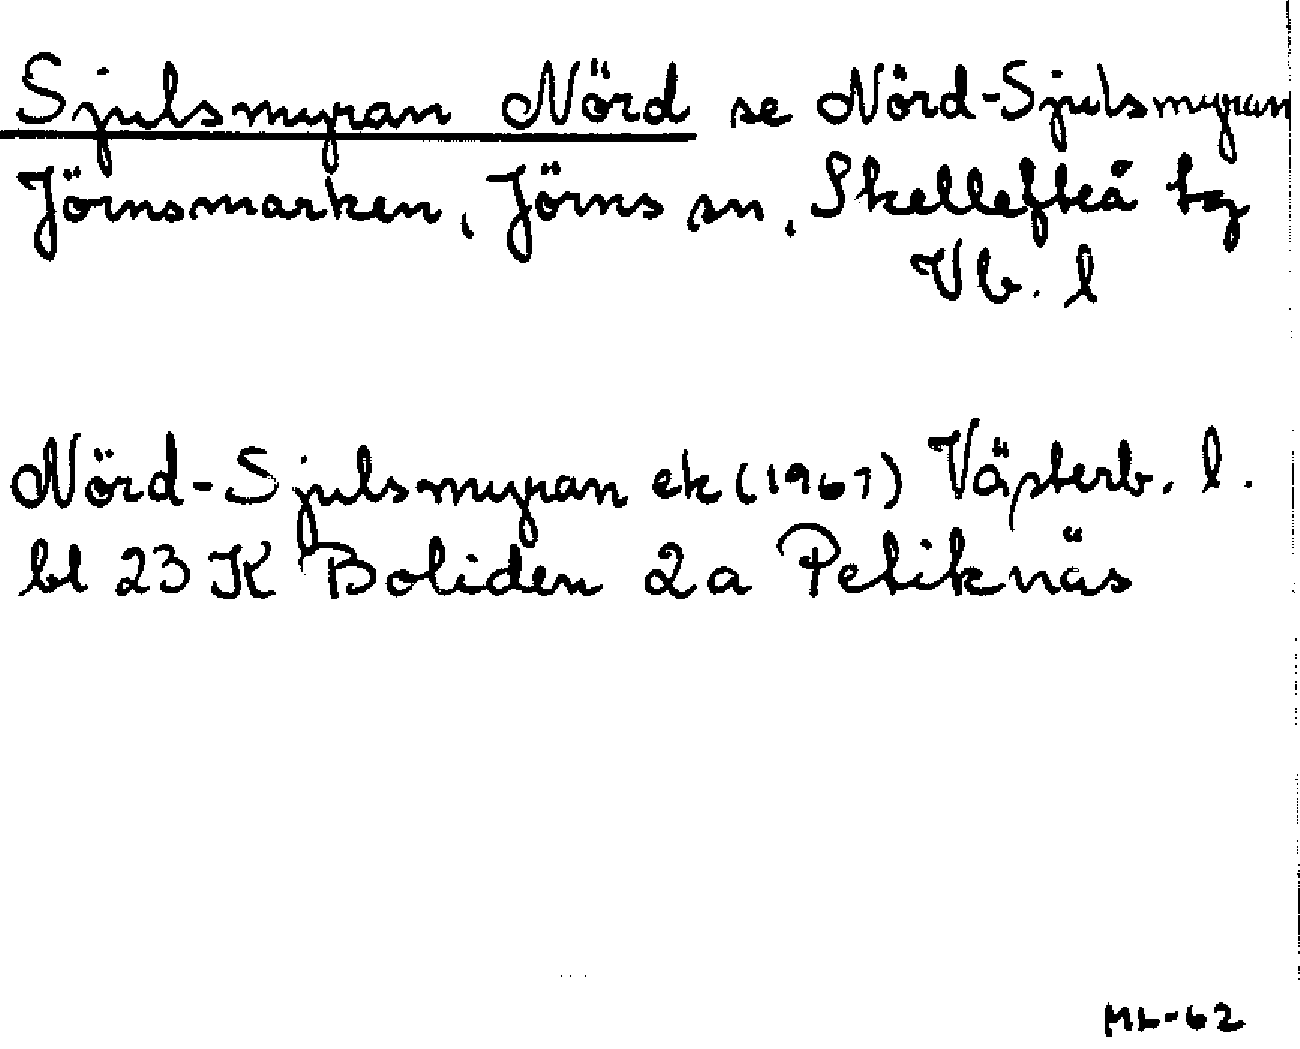 Sjulsmyran Nörd se Nörd-Sjulsmyran
Jörnsmarken, Jörns sn, Skellefteå tg
Vb. l
Nörd-Sjulsmyran ek (1961) Västerb. l.
bl 23 K Boliden 2a Petiknäs
ML-62